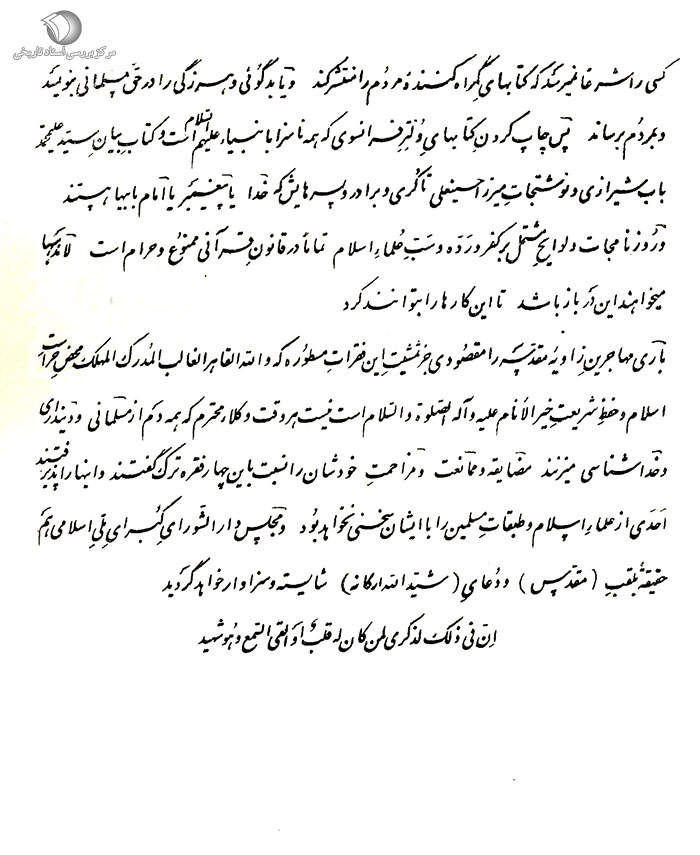 مرکز بررسی اسناد تاریخی
کسی را شرعا نمیرسد که کتابهای گمراه کنندهٔ مردم را منتشر کند و یا بدگوئی و هرزگی را در حقّ مسلمانی بنویسد
و بمردم برساند پس چاپ کردن کتابهای ولتر فرانسوی که همه ناسزا بانبیاء علیهم السّلام است و کتاب بیان سیّد علیمحمّد
باب شیرازی و نوشتجات میرزا حسینعلی تاکُری و برادر و پسرهایش که خدا یا پیغمبر یا امام بابیها هستند
و روزنامجات و لوایح مشتمل بر کفر و ردّه و سبّ علماء اسلام تماماً در قانون قرآنی ممنوع و حرام است لامذهبها
میخواهند این در باز باشد تا این کارها را بتوانند کرد
باری مهاجرین زاویهٔ مقدّسه را مقصودی جز تمشیت این فقرات مسطوره که و الله القاهر الغالب المدرک المهلک محض حراست
اسلام و حفظ شریعت خیر الأنام علیه و آله الصّلوة و السّلام است نیست هر وقت وکلاء محترم که همه دم از مسلمانی و دینداری
و خداشناسی میزنند مضایقه و ممانعت و مزاحمت خودشان را نسبت باین چهار فقره ترک گفتند و اینها را پذیرفتند
اَحَدی از علماء اسلام و طبقات مسلمین را با ایشان سخنی نخواهد بود و مجلس دار الشّورای کبرای ملّی اسلامی هم
حقیقةً بلقب (مقدّس) و دعای (شیّد الله ارکانه) شایسته و سزاوار خواهد گردید
انّ فی ذلک لذکری لمن کان له قلبٌ أو ألقی السّمع و هو شهید